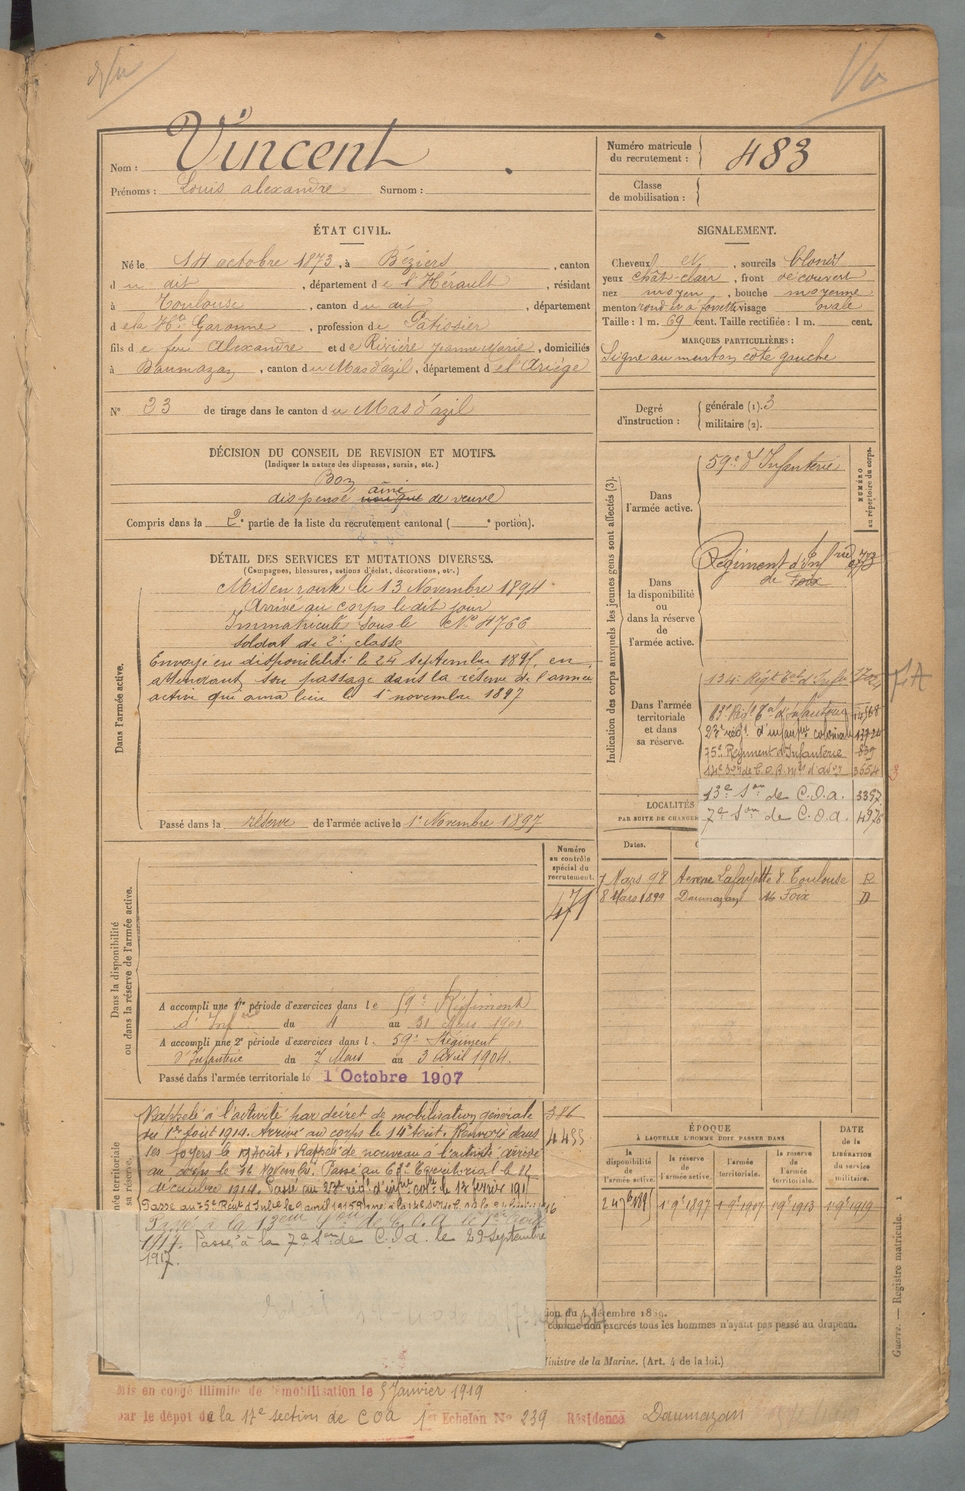 Nom : Vincent
Prénoms : Louis alexandre Surnom :
Numéro matricule du recrutement : 483
Classe de mobilisation :
ÉTAT CIVIL.
Né le 14 octobre 1873, à Béziers, canton
du dit, département de l'Hérault, résidant
à Toulouse, canton du dit, département
de la Hte Garonne, profession de Patissier
fils de feu Alexandre et de Rivière Jeanne Marie, domiciliés
à Daumazan, canton du Mas d'azil, département de l'Ariége
N° 33 de tirage dans le canton du Mas d'azil
SIGNALEMENT.
Cheveux et, sourcils blonds
yeux chât-clair, front découvert
nez moyen, bouche moyenne
menton rond à fossette visage ovale
Taille : 1 m. 69 cent. Taille rectifiée : 1 m. cent.
MARQUES PARTICULIÈRES :
Signe au menton côté gauche
Degré d'instruction : générale (1). 3
militaire (2).
DÉCISION DU CONSEIL DE REVISION ET MOTIFS.
(Indiquer la nature des dispenses, sursis, etc.)
Bon
dispensé unique ainé de veuve
Compris dans la 2e partie de la liste du recrutement cantonal ( e portion).
DÉTAIL DES SERVICES ET MUTATIONS DIVERSES.
(Campagnes, blessures, actions d'éclat, décorations, etc.)
Dans l'armée active.
Mis en route le 13 Novembre 1894
Arrivé au corps le dit jour
Immatriculé sous le N° 4766
soldat de 2e classe
Envoyé en disponibilité le 24 septembre 1895, en
attendant son passage dans la réserve de l'armée
active qui aura lieu le 1er novembre 1897
Passé dans la réserve de l'armée active le 1er Novembre 1897
Indication des corps auxquels les jeunes gens sont affectés (3).
NUMÉRO au répertoire du corps.
Dans l'armée active.
59e d'Infanterie
Dans la disponibilité ou dans la réserve de l'armée active.
Régiment d'Infrie
de Foix
Dans l'armée territoriale et dans sa réserve.
134e Régt Tal d'Infie
63e Régt Tal d'Infanterie
23e régt d'infanrie coloniale
75e Régiment d'Infanterie 839
3654
13e Son de C.O.a. 3397
7e Son de C.O.a. 4976
LOCALITÉS
PAR SUITE DE CHANGE
Dates.
7 Mars 98 Avenue Lafayette 8 Toulouse R
8 Mars 1899 Daumazan Foix D
Dans la disponibilité ou dans la réserve de l'armée active.
Numéro au contrôle spécial du recrutement.
471
A accompli une 1re période d'exercices dans le 59e Régiment
d'Infrie du 4 au 31 Mars 1901
A accompli une 2e période d'exercices dans l. 59e Régiment
d'Infanterie du 7 Mars au 3 Avril 1904.
Passé dans l'armée territoriale le 1 Octobre 1907
Rappelé à l'activité par décret de mobilisation générale
du 1er Aout 1914. Arrivé au corps le 14 Aout. Renvoyé dans
ses foyers le Aout. Rappelé de nouveau à l'activité arrivé
au corps le Novembre. Passé au 63e Territorial le 11
décembre 1914. Passé au 23e régt d'infrie colle le 12 février 1915
Passé à la 13ème Son de C.O.A. le
1917. Passé à la 7e Son de C.O.a. le 29 septembre
1917.
386
4455
ÉPOQUE
À LAQUELLE L'HOMME DOIT PASSER DANS
la disponibilité de l'armée active.
la réserve de l'armée active.
l'armée territoriale.
la réserve de l'armée territoriale.
DATE de la LIBÉRATION du service militaire.
24 7bre 1895 1er 9bre 1897 1er 9bre 1907 1er 9bre 1913 1er 9bre 1919
comme non exercés tous les hommes n'ayant pas passé au drapeau.
Ministre de la Marine. (Art. 4 de la loi.)
Guerre. — Registre matricule. 1
Mis en congé illimité de démobilisation le 5 Janvier 1919
par le dépot de la 17e section de COA 1er Echelon N° 239 Résidence Daumazan